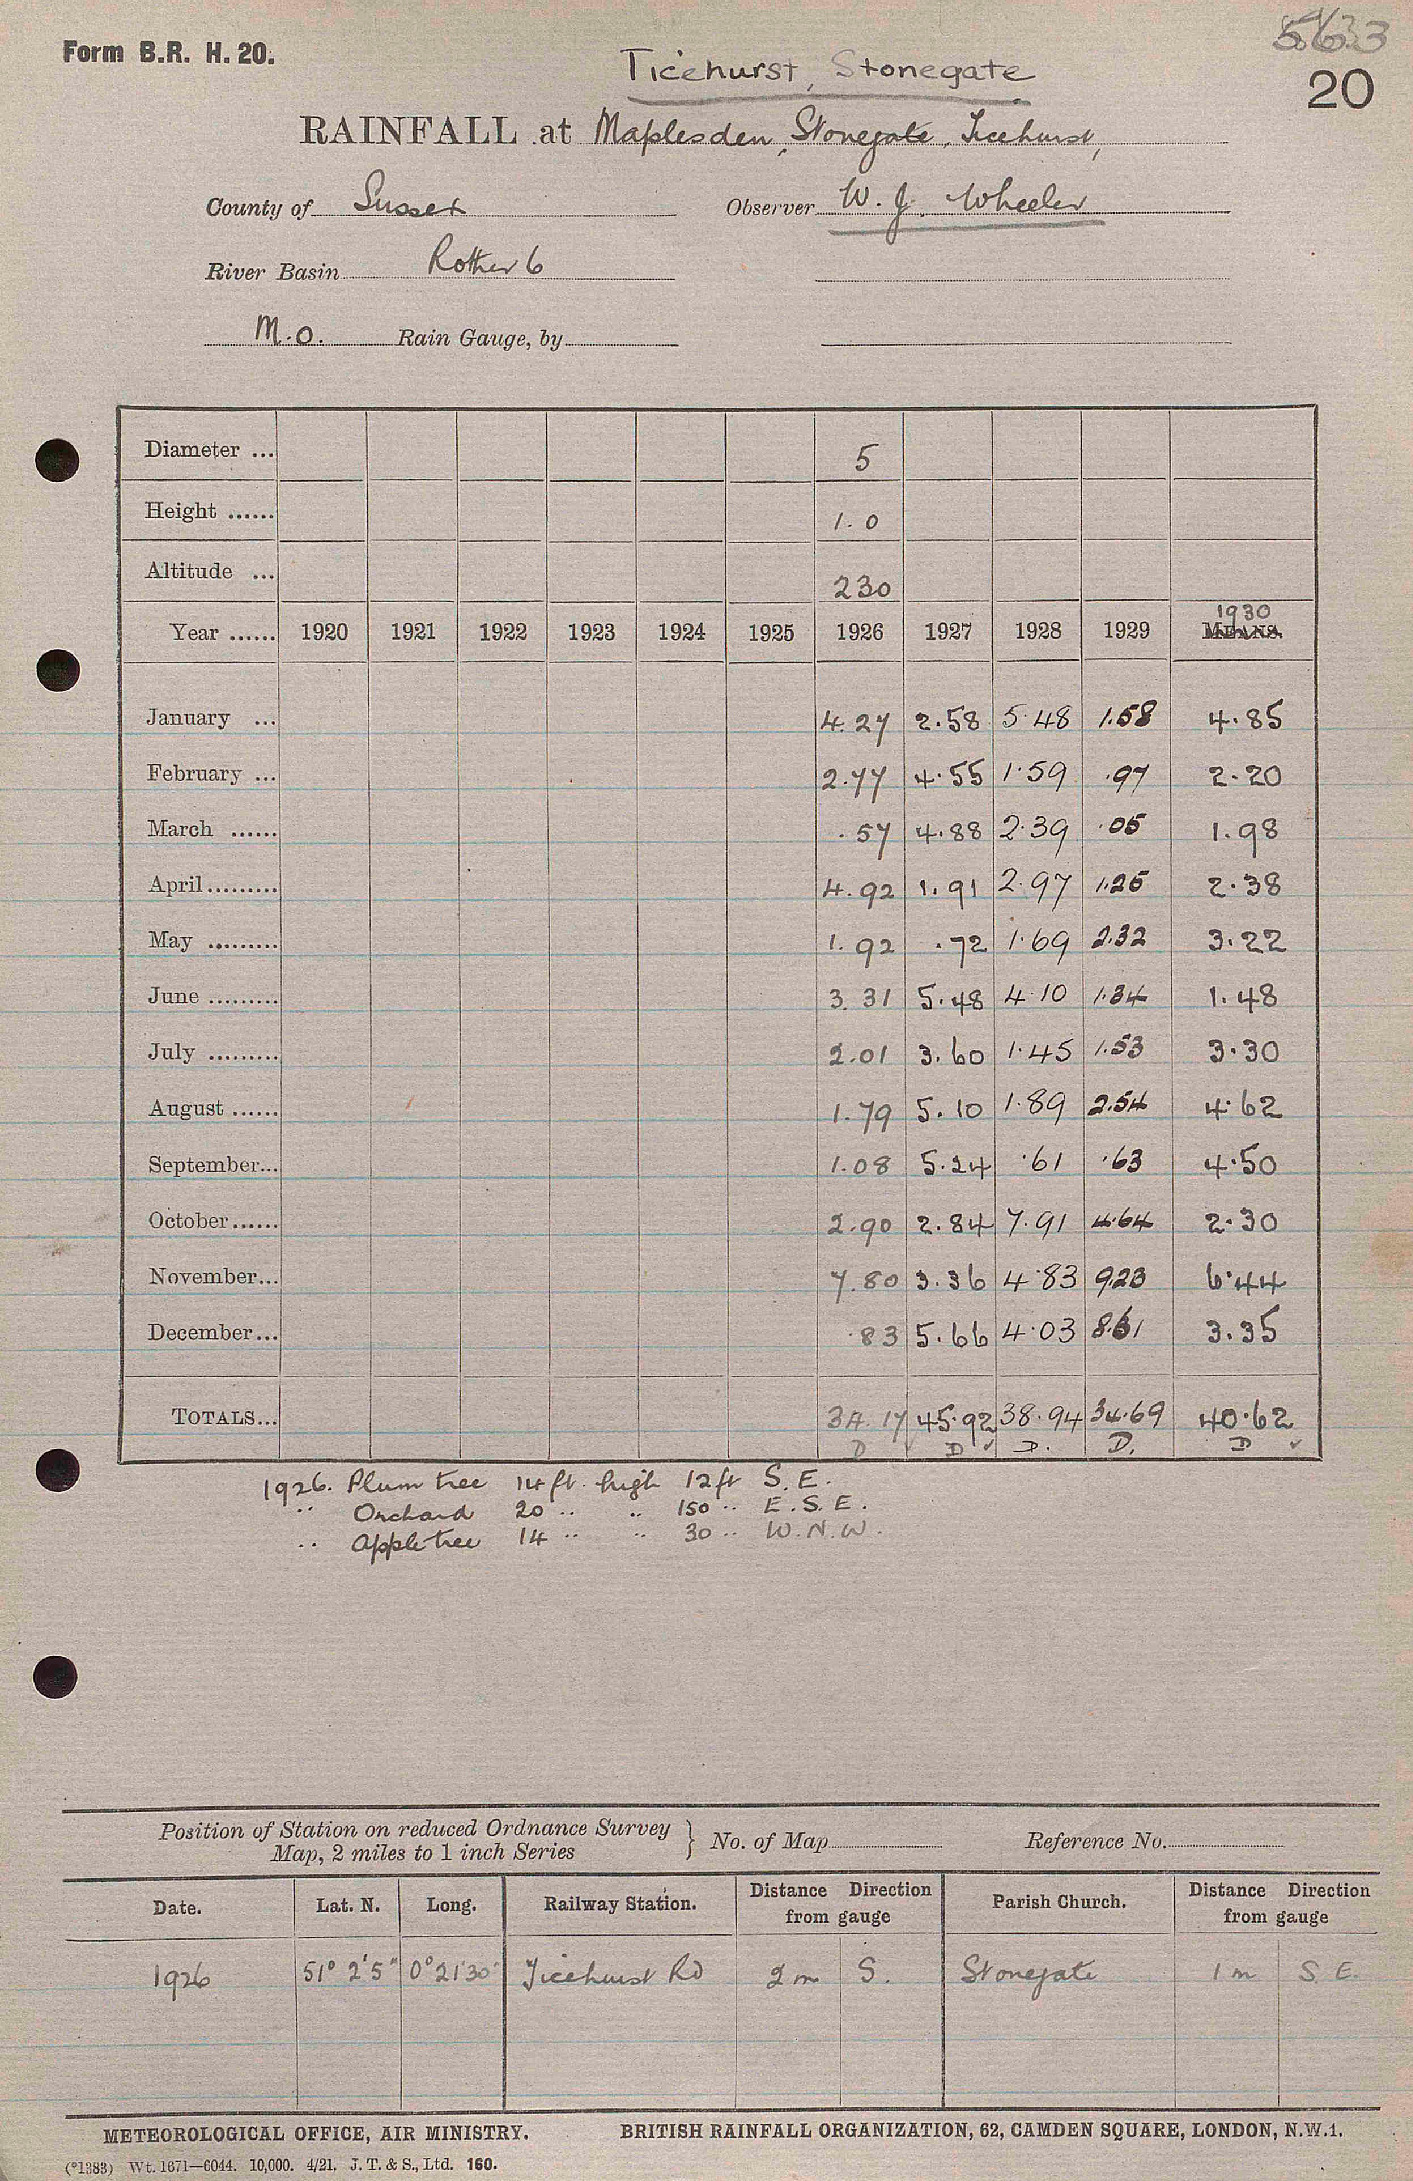 5633
Form B.R. H. 20.
Ticehurst, Stonegate
20
RAINFALL at Maplesden, Stonegate, Ticehurst,
County of Sussex Observer W. J. Wheeler
River Basin Rother 6
M.O. Rain Gauge, by
Diameter ... 5
Height ...... 1.0
Altitude ... 230
1930
Year ...... 1920 1921 1922 1923 1924 1925 1926 1927 1928 1929 MEANS.
January ... 4.27 2.58 5.48 1.58 4.85
February ... 2.77 4.55 1.59 .97 2.20
March ...... .57 4.88 2.39 .05 1.98
April ......... 4.92 1.91 2.97 1.25 2.38
May ......... 1.92 .72 1.69 2.32 3.22
June ......... 3.31 5.48 4.10 1.34 1.48
July ......... 2.01 3.60 1.45 1.53 3.30
August ...... 1.79 5.10 1.89 2.54 4.62
September... 1.08 5.24 .61 .63 4.50
October ...... 2.90 2.84 7.91 4.64 2.30
November... 7.80 3.36 4.83 9.23 6.44
December... .83 5.66 4.03 8.61 3.35
TOTALS... 34.17 45.92 38.94 34.69 40.62
D ✓ D ✓ D. D. D ✓
1926. Plum tree 14 ft. high 12 ft S.E.
" Orchard 20 " " 150 " E.S.E.
" Apple tree 14 " " 30 " W.N.W.
Position of Station on reduced Ordnance Survey Map, 2 miles to 1 inch Series } No. of Map Reference No.
Date. Lat. N. Long. Railway Station. Distance Direction from gauge Parish Church. Distance Direction from gauge
1926 51° 2'5" 0°21'30" Ticehurst Rd 2 m S. Stonegate 1 m S.E.
METEOROLOGICAL OFFICE, AIR MINISTRY. BRITISH RAINFALL ORGANIZATION, 62, CAMDEN SQUARE, LONDON, N.W.1.
(*1383) Wt. 1671—6044. 10,000. 4/21. J. T. & S., Ltd. 160.